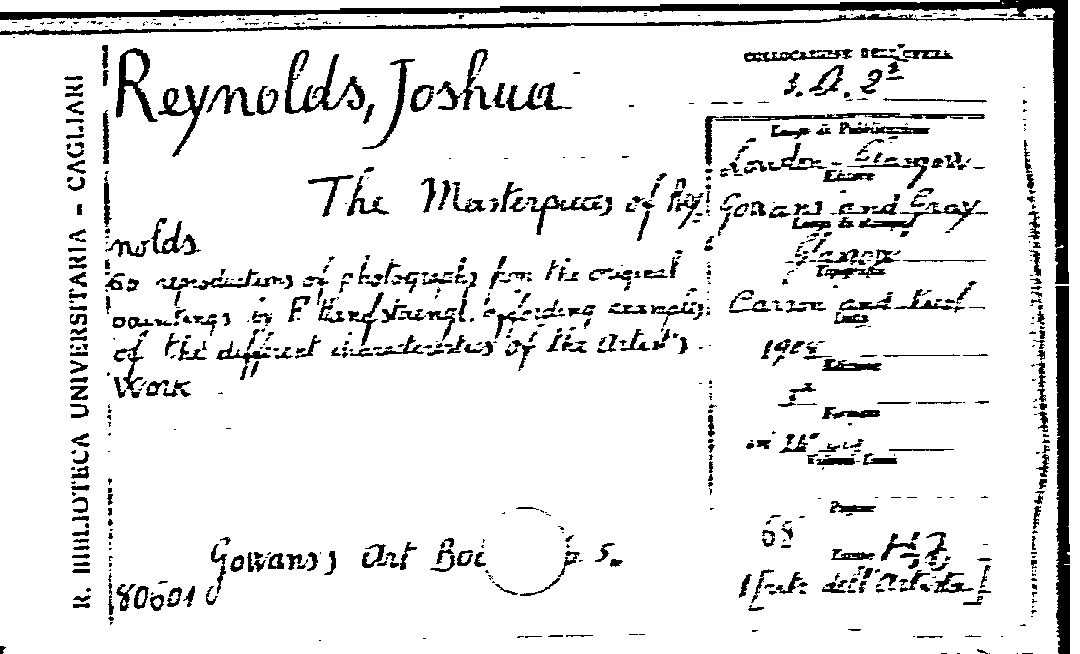 R. BIBLIOTECA UNIVERSITARIA - CAGLIARI
Reynolds, Joshua
The Masterpieces of Rey
nolds
60 reproductions of photographs from the original
paintings by F. Hanfstaengl, affording examples
of the different characteristics of the Artist's
Work
Gowans's Art 5.
80601
COLLOCAZIONE DELL'OPERA
Luogo di Pubblicazione
London - Glasgow
Editore
Gowans and Gray
Luogo di stampa
Glasgow
Tipografia
and
Data
Edizione
Formato
in
Pagine
68
Tavole
1 [ritr. dell'Artista]